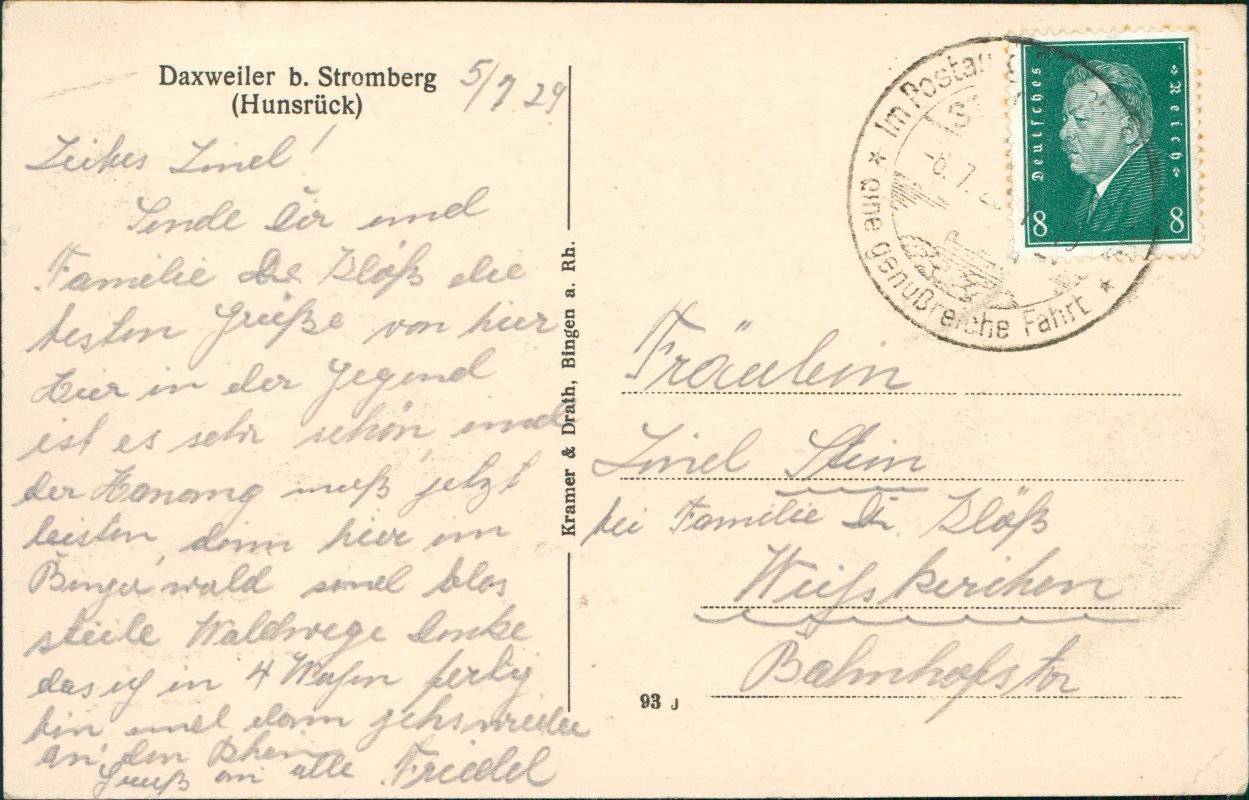 Daxweiler b. Stromberg
(Hunsrück)
5/7 29
Liebes Linel!
Sende Dir und
Familie Dr. Klöß die
besten Grüße von hier
Hier in der Gegend
ist es sehr schön, und
der Hanomag muß jetzt
leisten, denn hier im
Binger wald sind blos
steile Waldwege Denke
das ich in 4 Wochen fertig
bin und dann gehs wieder
an den Rhein
Gruß an alle Friedel
Kramer & Drath, Bingen a. Rh.
Im Postau
-6.7.
★ eine genußreiche Fahrt ★
Deutsches Reich
8 8
Fräulein
Linel Stein
bei Familie Dr. Klöß
Weißkirchen
Bahnhofstr
93 J